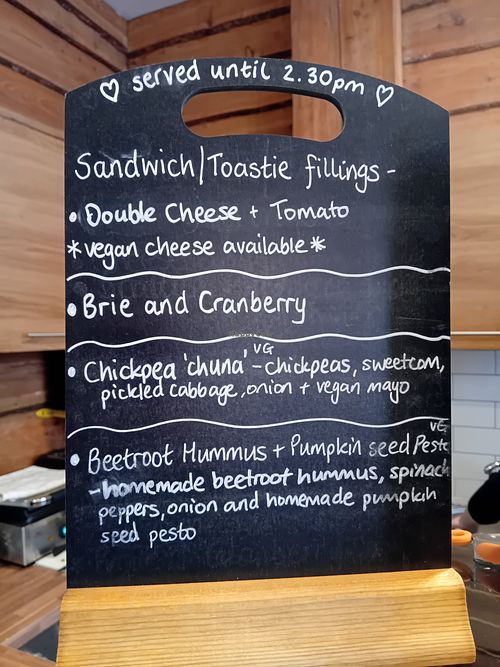 ♡ served until 2.30pm ♡
Sandwich/Toastie fillings -
• Double Cheese + Tomato
*vegan cheese available*
• Brie and Cranberry
• Chickpea 'chuna' VG - chickpeas, sweetcorn,
pickled cabbage, onion + vegan mayo
VG
• Beetroot Hummus + Pumpkin seed Pesto
- homemade beetroot hummus, spinach
peppers, onion and homemade pumpkin
seed pesto